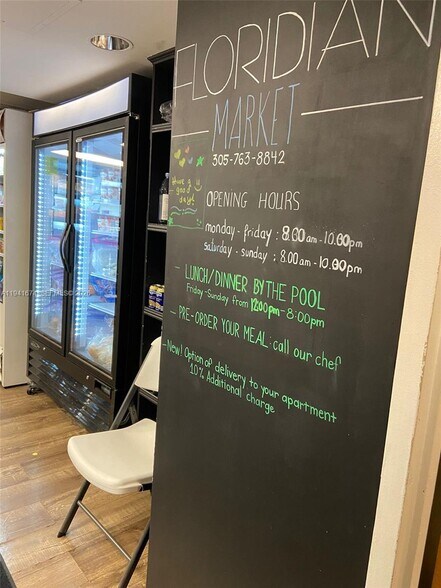 FLORIDIAN
MARKET
305-763-8842
Have a
good
day!
OPENING HOURS
monday - friday : 8.00am - 10.00pm
saturday - sunday : 8.00am - 10.00pm
- LUNCH/DINNER BY THE POOL
Friday-Sunday from 12:00pm - 8:00pm
- PRE-ORDER YOUR MEAL : call our chef
- New! Option of delivery to your apartment
10% Additional charge